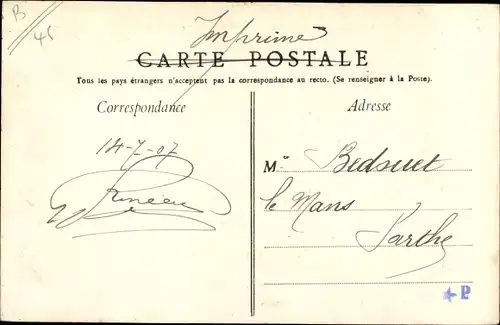 B
45
Imprimé
CARTE POSTALE
Tous les pays étrangers n'acceptent pas la correspondance au recto. (Se renseigner à la Poste).
Correspondance
14-7-07
Adresse
M
le Mans
Sarthe
P